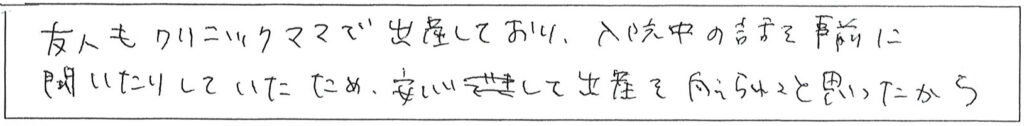 友人もクリニックママで出産しており、入院中の話を事前に
聞いたりしていたため、安心して出産を向えられると思ったから